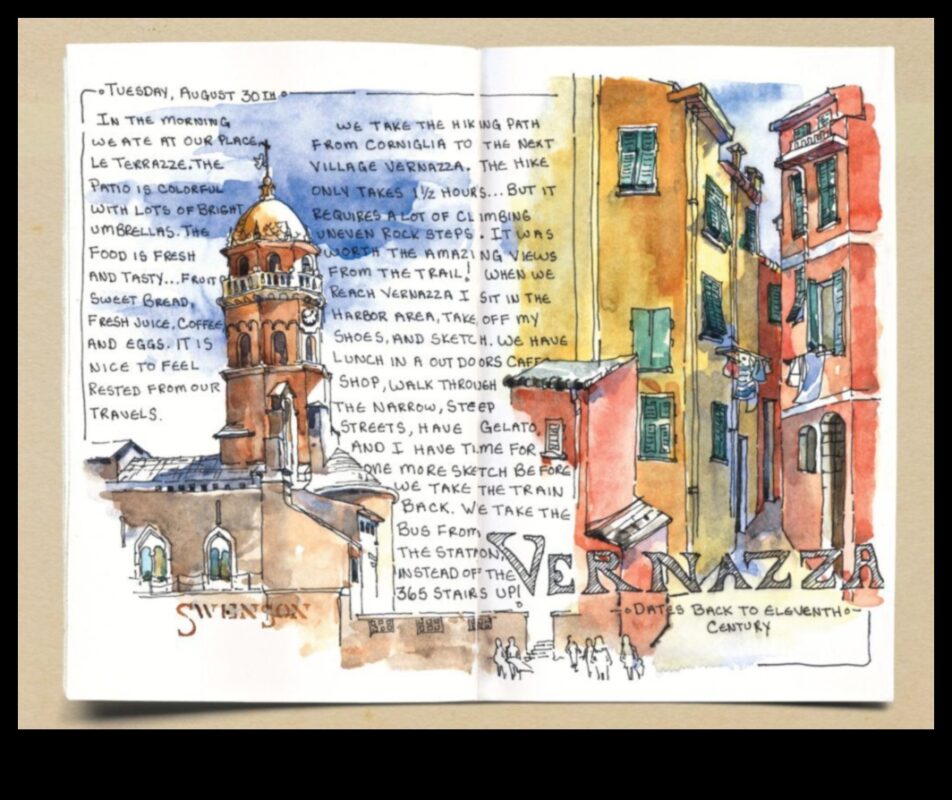 TUESDAY, AUGUST 30TH
IN THE MORNING
WE ATE AT OUR PLACE,
LE TERRAZZE. THE
PATIO IS COLORFUL
WITH LOTS OF BRIGHT
UMBRELLAS. THE
FOOD IS FRESH
AND TASTY...FRUIT
SWEET BREAD,
FRESH JUICE, COFFEE
AND EGGS. IT IS
NICE TO FEEL
RESTED FROM OUR
TRAVELS.
WE TAKE THE HIKING PATH
FROM CORNIGLIA TO THE NEXT
VILLAGE VERNAZZA. THE HIKE
ONLY TAKES 1½ HOURS... BUT IT
REQUIRES A LOT OF CLIMBING
UNEVEN ROCK STEPS. IT WAS
WORTH THE AMAZING VIEWS
FROM THE TRAIL! WHEN WE
REACH VERNAZZA I SIT IN THE
HARBOR AREA, TAKE OFF MY
SHOES, AND SKETCH. WE HAVE
LUNCH IN A OUTDOORS CAFE
SHOP, WALK THROUGH
THE NARROW, STEEP
STREETS, HAVE GELATO,
AND I HAVE TIME FOR
ONE MORE SKETCH BEFORE
WE TAKE THE TRAIN
BACK. WE TAKE THE
BUS FROM
THE STATION,
INSTEAD OF THE
365 STAIRS UP!
VERNAZZA
DATES BACK TO ELEVENTH
CENTURY
SWENSON